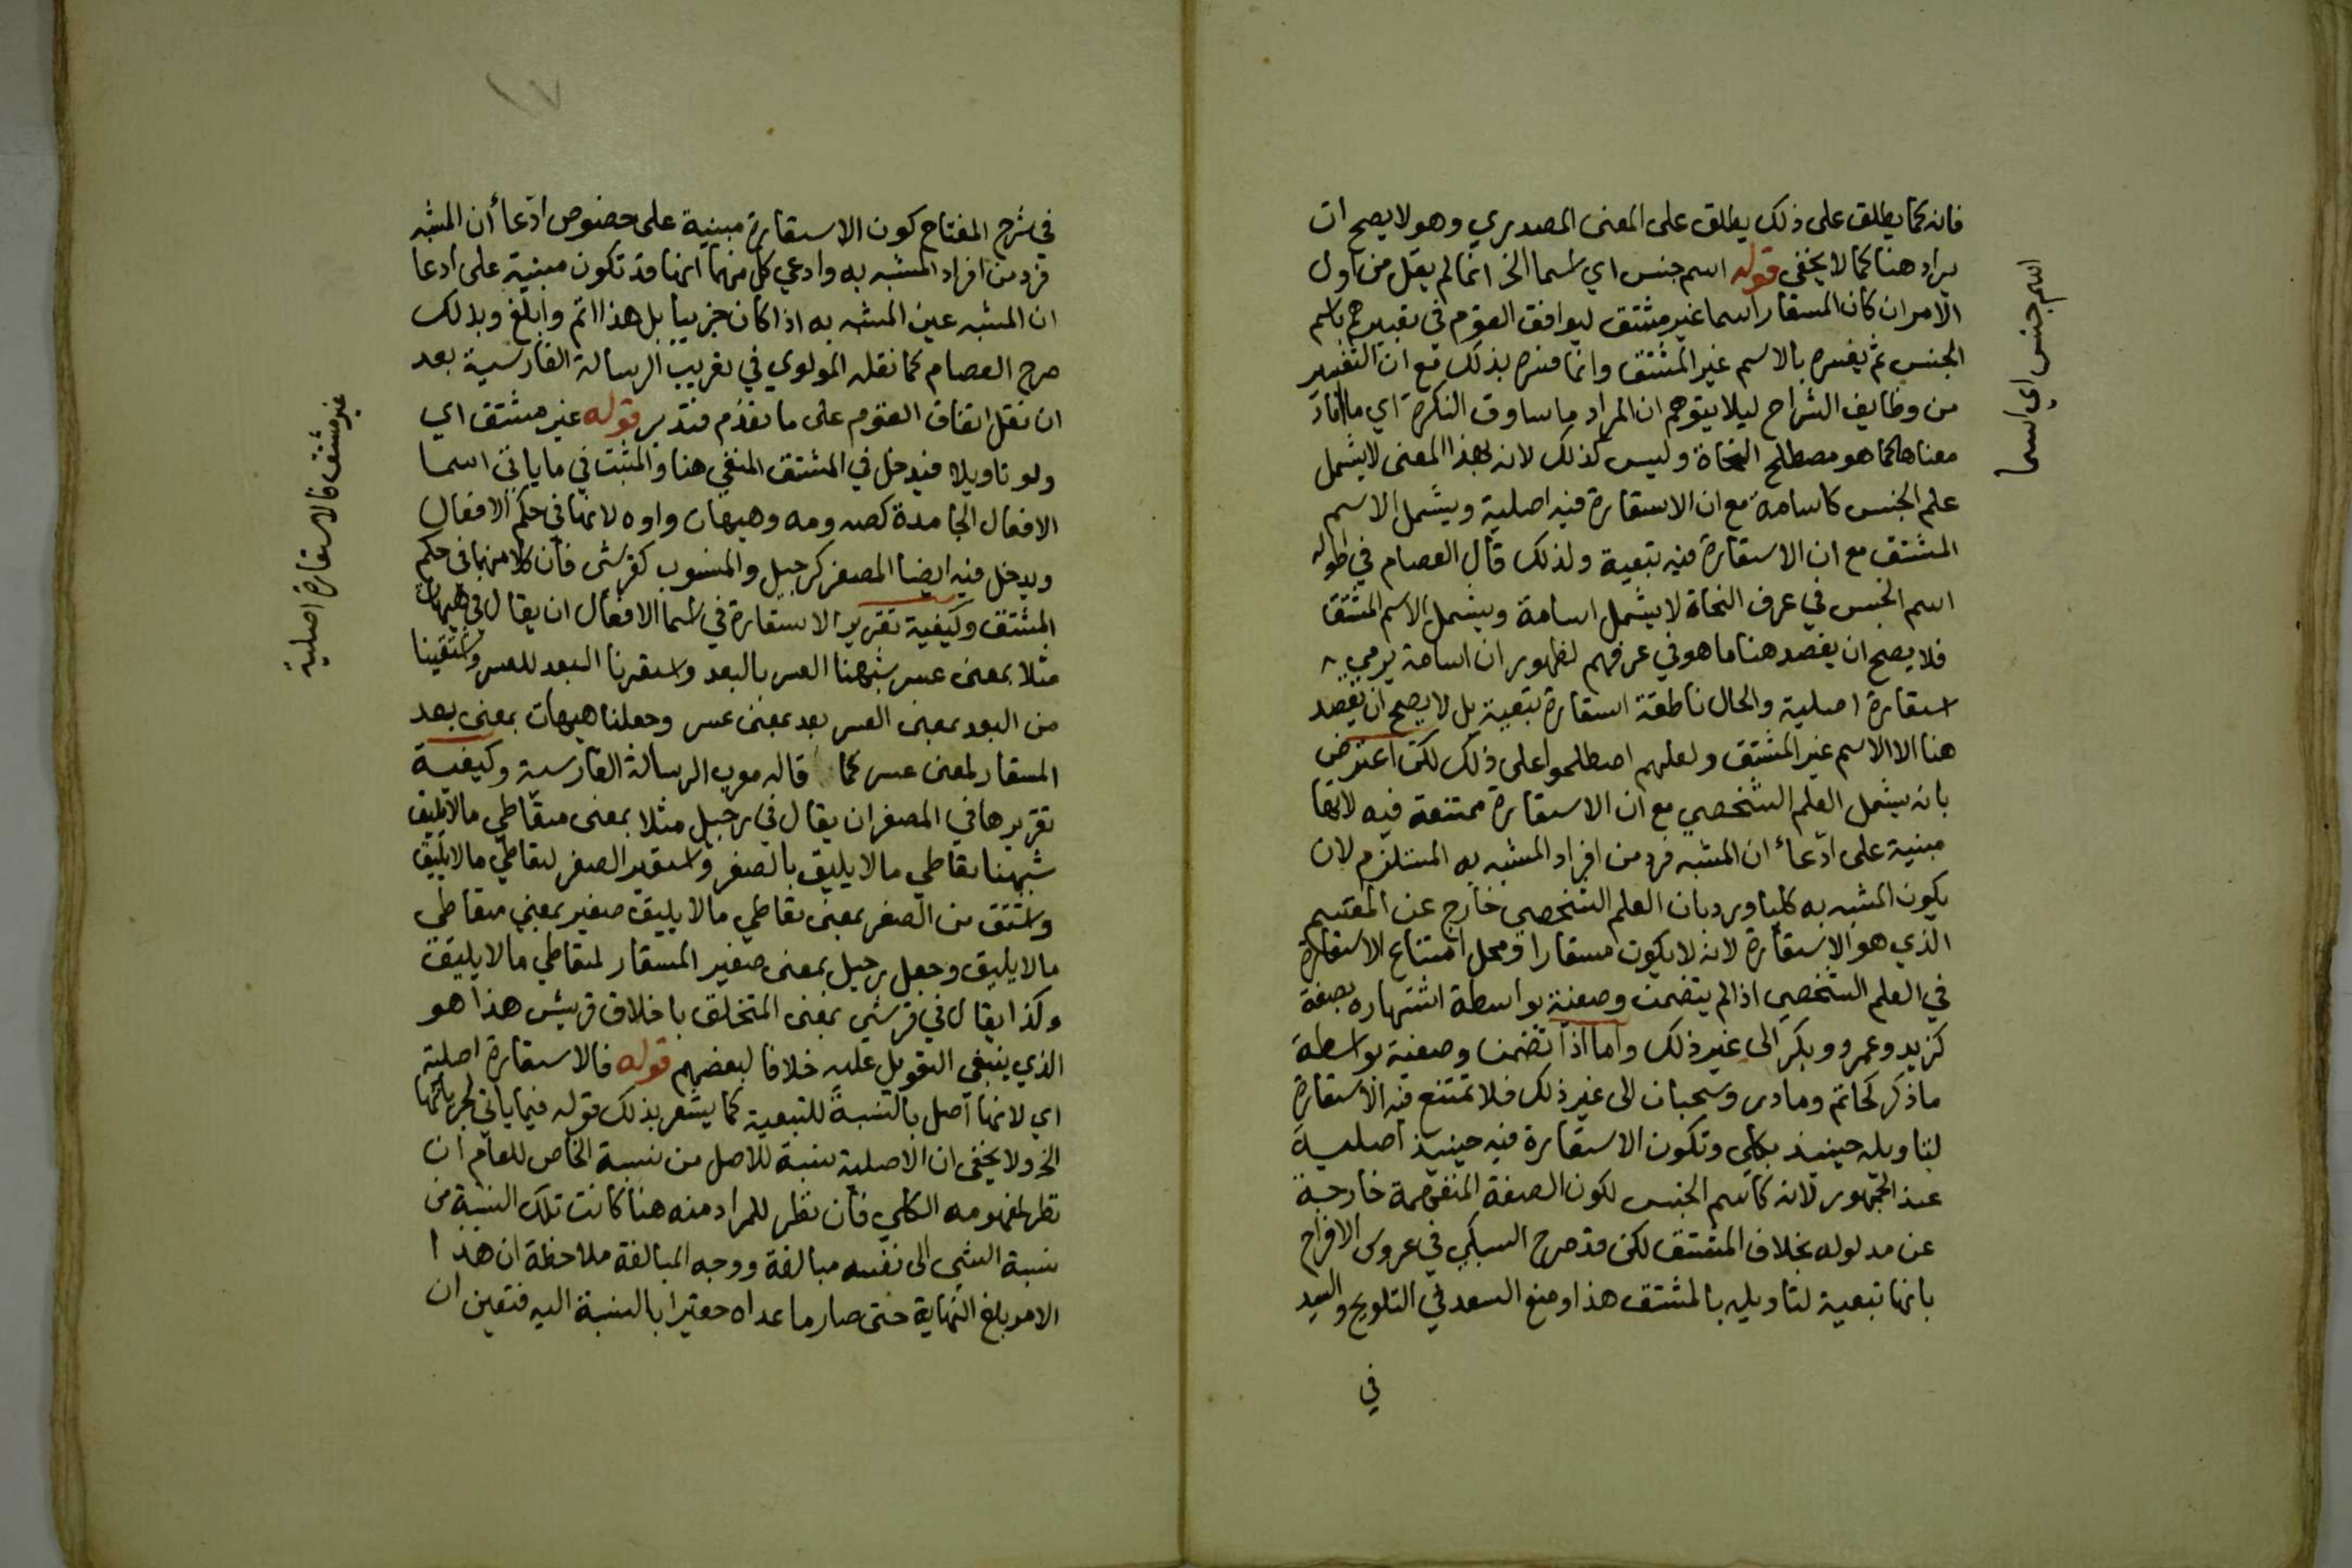 فانه كما يطلق على ذلك يطلق على المعنى المصدري وهو لا يصح ان
يراد هنا كما لا يخفى قوله اسم جنس اي اسما الخ انما لم يقل من اول
الامر ان كان المستعار اسما غير مشتق ليوافق القوم في تعبيرهم باسم
الجنس ثم يفسره بالاسم غير المشتق وانما فسره بذلك مع ان التفسير
من وظايف الشراح ليلا يتوهم ان المراد ما ساوق النكرة اي ما افاد
معناها كما هو مصطلح النحاة وليس كذلك لانه بهذا المعنى لا يشمل
علم الجنس كاسامة مع ان الاستعارة فيه اصلية ويشمل الاسم
المشتق مع ان الاستعارة فيه تبعية ولذلك قال العصام في اطوله
اسم الجنس في عرف النحاة لا يشمل اسامة ويشمل الاسم المشتق
فلا يصح ان يقصد هنا ما هو في عرفهم لظهور ان اسامة يرمي
استعارة اصلية والحال ناطقة استعارة تبعية بل لا يصح ان يقصد
هنا الا الاسم غير المشتق ولعلهم اصطلحوا على ذلك لكن اعترض
بانه يشمل العلم الشخصي مع ان الاستعارة ممتنعة فيه لانها
مبنية على ادّعاء ان المشبه فرد من افراد المشبه به المستلزم لان
يكون المشبه به كليا ورد بان العلم الشخصي خارج عن المقسم
الذي هو الاستعارة لانه لا يكون مستعارا ومحل امتناع الاستعارة
في العلم الشخصي اذا لم يتضمن وصفية بواسطة اشتهاره بصفة
كزيد وعمرو وبكر الى غير ذلك واما اذا تضمن وصفية بواسطة
ما ذكر كحاتم ومادر وسحبان الى غير ذلك فلا تمتنع فيه الاستعارة
لتاويله حينيذ بكلي وتكون الاستعارة فيه حينيذ اصلية
عند الجمهور لانه كاسم الجنس لكون الصفة المتضمنة خارجة
عن مدلوله بخلاف المشتق لكن قد صرح السبكي في عروس الافراح
بانها تبعية لتاويله بالمشتق هذا ومنع السعد في التلويح والسيد
في
اسم جنس اي اسما
١٧
في شرح المفتاح كون الاستعارة مبنية على خصوص ادّعاء أن المشبه
فرد من افراد المشبه به وادعي كل منهما انها قد تكون مبنية على ادعا
ان المشبه عين المشبه به اذا كان جزييا بل هذا اتم وابلغ وبذلك
صرح العصام كما نقله المولوي في تعريب الرسالة الفارسية بعد
ان نقل اتفاق القوم على ما تقدم فتدبر قوله غير مشتق اي
ولو تاويلا فيدخل في المشتق المنفي هنا والمثبت في ما ياتي اسما
الافعال الجامدة كصه ومه وهيهات واوه لانها في حكم الافعال
ويدخل فيه ايضا المصغر كرجيل والمنسوب كقرشي فان كلا منهما في حكم
المشتق وكيفية تقرير الاستعارة في اسما الافعال ان يقال في هيهات
مثلا بمعنى عسر شبهنا العسر بالبعد واستعرنا البعد للعسر واشتقينا
من البعد بمعنى العسر بعد بمعنى عسر وجعلنا هيهات بمعنى بعد
المستعار لمعنى عسر كما قاله معرب الرسالة الفارسية وكيفية
تقريرها في المصغر ان يقال في رجيل مثلا بمعنى متعاطي ما لا يليق
شبهنا تعاطي ما لا يليق بالصغر واستعير الصغر لتعاطي ما لا يليق
واشتق من الصغر بمعنى تعاطي ما لا يليق صغير بمعنى متعاطي
ما لا يليق وجعل رجيل بمعنى صغير المستعار لمتعاطي ما لا يليق
وكذا يقال في قرشي بمعنى المتخلق باخلاق قريش هذا هو
الذي ينبغي التعويل عليه خلافا لبعضهم قوله فالاستعارة اصلية
اي لانها اصل بالنسبة للتبعية كما يشعر بذلك قوله فيما ياتي لجريانها
الخ ولا يخفى ان الاصلية نسبة للاصل من نسبة الخاص للعام ان
نظر لمفهومه الكلي فان نظر للمراد منه هنا كانت تلك النسبة من
نسبة الشي الى نفسه مبالغة ووجه المبالغة ملاحظة ان هذا
الامر بلغ النهاية حتى صار ما عداه حقيرا بالنسبة اليه فتعين ان
غير مشتق فالاستعارة اصلية